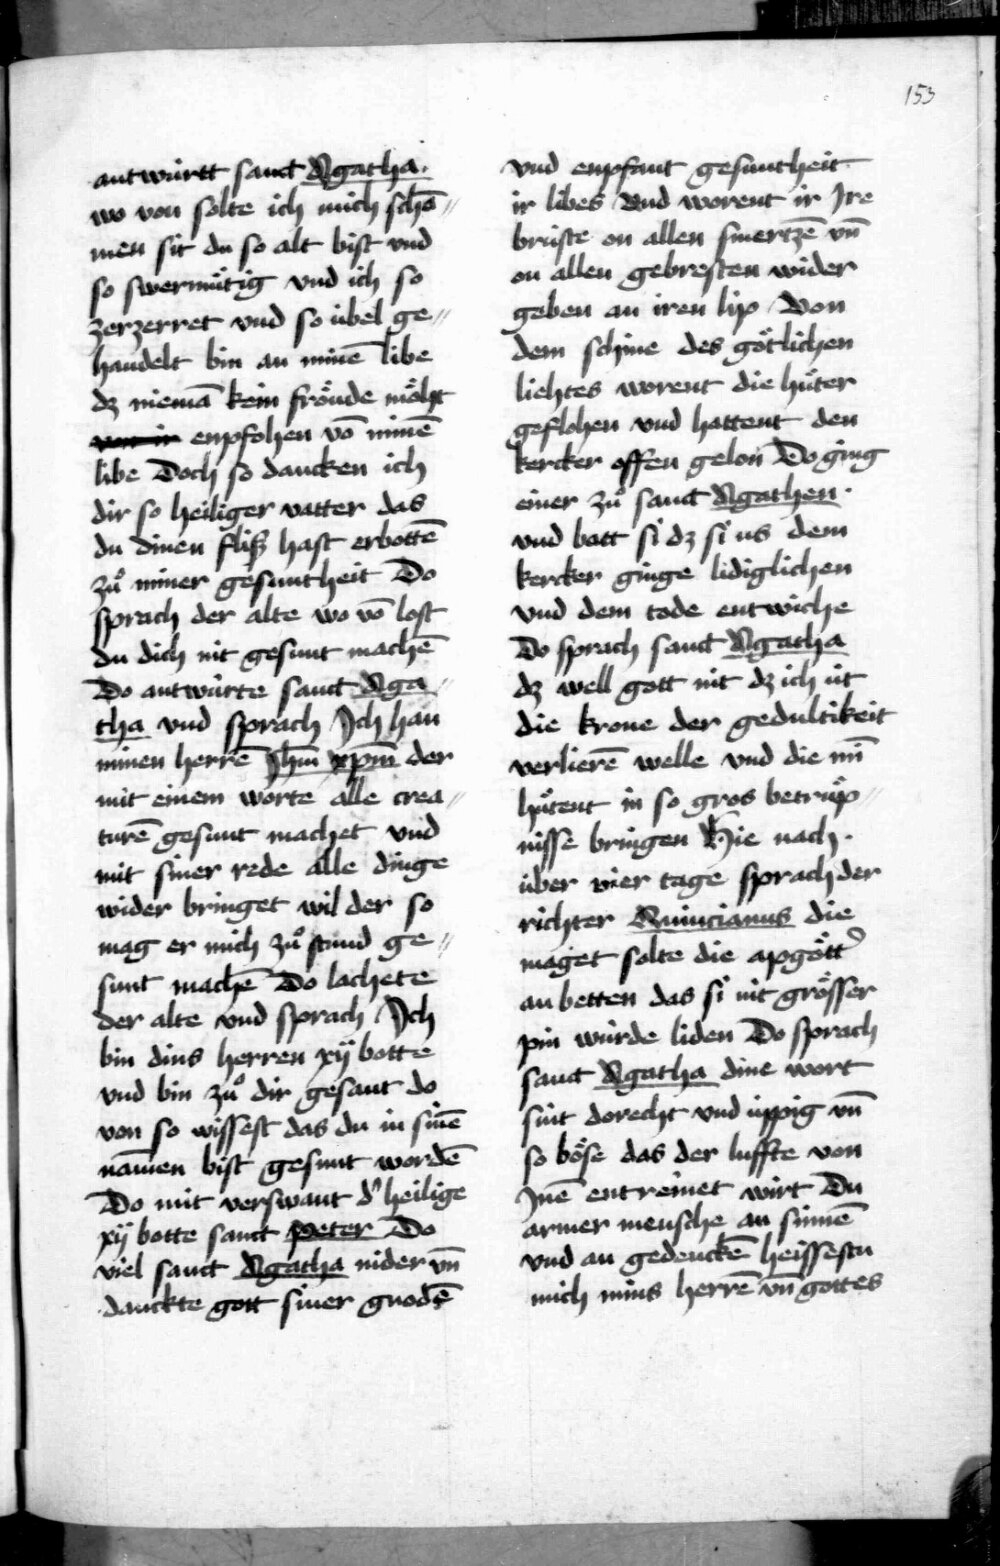 153
antwúrtt sanct Agatha.
wo von solte ich mich schō〃
men sit du so alt bist vnd
so swermuͤtig vnd ich so
zerzerret vnd so úbel ge〃
handelt bin an minē libe
dz niemā kein froͤude moͤht
enpfohen vō minē
libe Doch so dancken ich
dir so heiliger vatter das
du dinen fliß hast erbottē
zuͦ miner gesuntheit Do
sprach der alte wo vō lost
du dich nit gesunt machē
Do antwúrte sanct Aga〃
tha vnd sprach Ich han
minen herrē Jhm̄ xp̄m der
mit einem worte alle crea〃
turē gesunt machet vnd
mit siner rede alle dinge
wider bringet wil der so
mag er mich zuͦ stund ge〃
sunt machē Do lachete
der alte vnd sprach Ich
bin dins herren xij botte
vnd bin zuͦ dir gesant do
von so wissest das du in sinē
nam̄en bist gesunt wordē
Do mit verswant d' heilige
xij botte sanct peter Do
viel sanct Agatha nider vn̄
danckte gott siner gnodē
vnd enpfant gesuntheit
ir libes Vnd worent ir Ire
brúste on allen smertzē vn̄
on allen gebresten wider
geben an iren lip Von
dem schine des goͤtlichen
liehtes worent die huͤter
geflohen vnd hattent den
kercker offen gelon Do ging
einer zuͦ sanct Agathen.
vnd batt si dz si us dem
kercker ginge lidiglichen
vnd dem tode entwiche
Do sprach sanct Agatha
dz well gott nit dz ich út
die krone der gedultikeit
verlierē welle vnd die mī
huͤtent in so gros betruͤp〃
nisse bringen Hie nach.
úber vier tage sprach der
richter Quincianus die
maget solte die apgoͤtt'
an betten das si nit groͤsser
pin wúrde liden Do sprach
sanct Agatha dine wort
sint dorecht vnd úppig vn̄
so boͤse das der luffte von
Inē entreinet wirt Du
armer mensche an sinnē
vnd an gedenckē heissestu
mich mins herrē vn̄ gottes